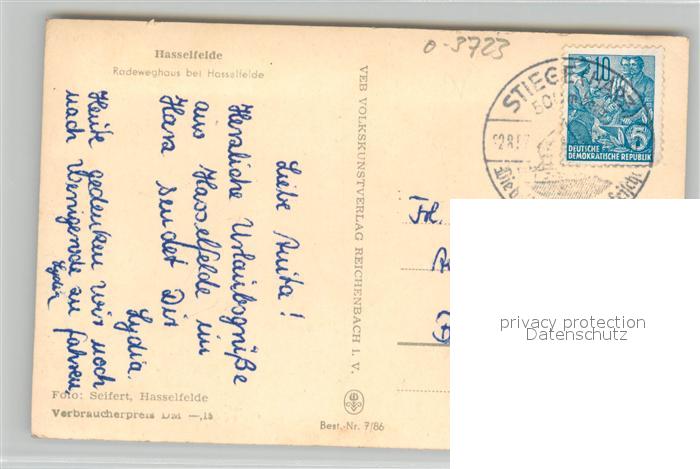 o-3723
Hasselfelde
Radeweghaus bei Hasselfelde
STIEGE HARZ
50
-2.8.57
10
5
DEUTSCHE
DEMOKRATISCHE REPUBLIK
VEB VOLKSKUNSTVERLAG REICHENBACH i. V.
Liebe Anita!
Herzliche Urlaubsgrüße
aus Hasselfelde im
Harz sendet Dir
Lydia.
Heute gedenken wir noch
nach Wernigerode zu fahren.
Lydia
Frl.
privacy protection
Datenschutz
Foto: Seifert, Hasselfelde
Verbraucherpreis DM —,15
Best.-Nr. 7/86